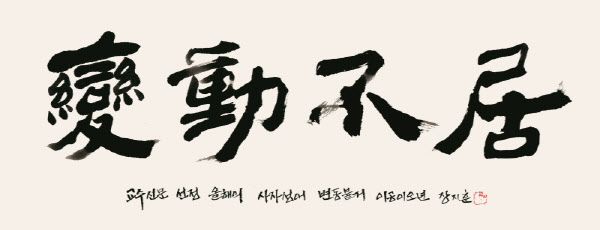 變動不居
교수신문 선정 올해의 사자성어 변동불거 이응이오년 장지훈